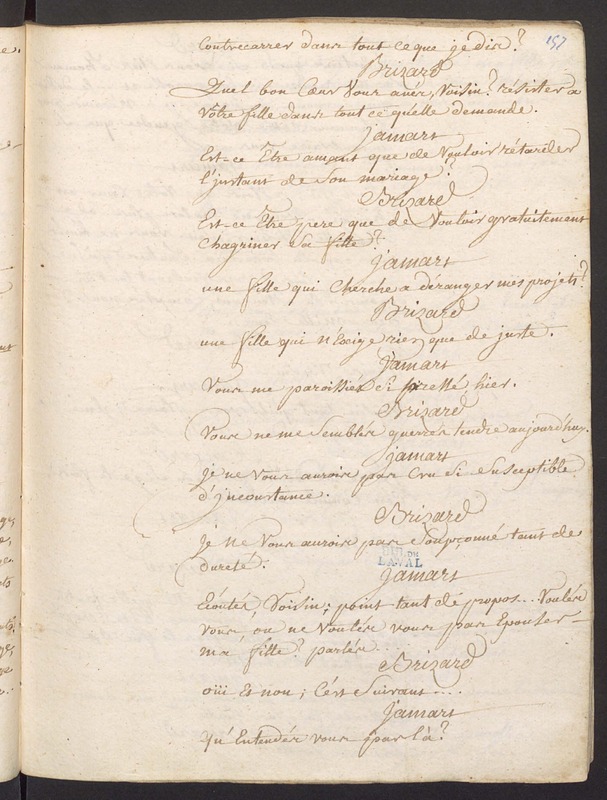 157
Contrecarrer dans tout ce que je dis?
Brizard
Quel bon Cœur vous avés, Voisin? résister a
votre fille dans tout ce qu'elle demande.
Jamars
Est-ce Etre amant que de vouloir rétarder
l'jnstant de son mariage?
Brizard
Est-ce Etre pere que de vouloir gratuitement
Chagriner sa fille?
Jamars
une fille qui Cherche a déranger mes projets?
Brizard
une fille qui n'Exige rien que de juste.
Jamars
Vous me paroissiés si pressé hier.
Brizard
Vous ne me semblés guerres tendre aujourd'huy.
Jamars
je ne vous aurois pas Cru si susceptible
d'jnconstance.
Brizard
je ne vous aurois pas soupçonné tant de
dureté.
BIB. DE
LAVAL
Jamars
Ecoutés, Voisin; point tant dé propos... Voulés
vous, ou ne voulés vous pas Epouser
ma fille? parlés....
Brizard
oüi Et non; C'est suivant....
Jamars
qu'Entendés vous par là?